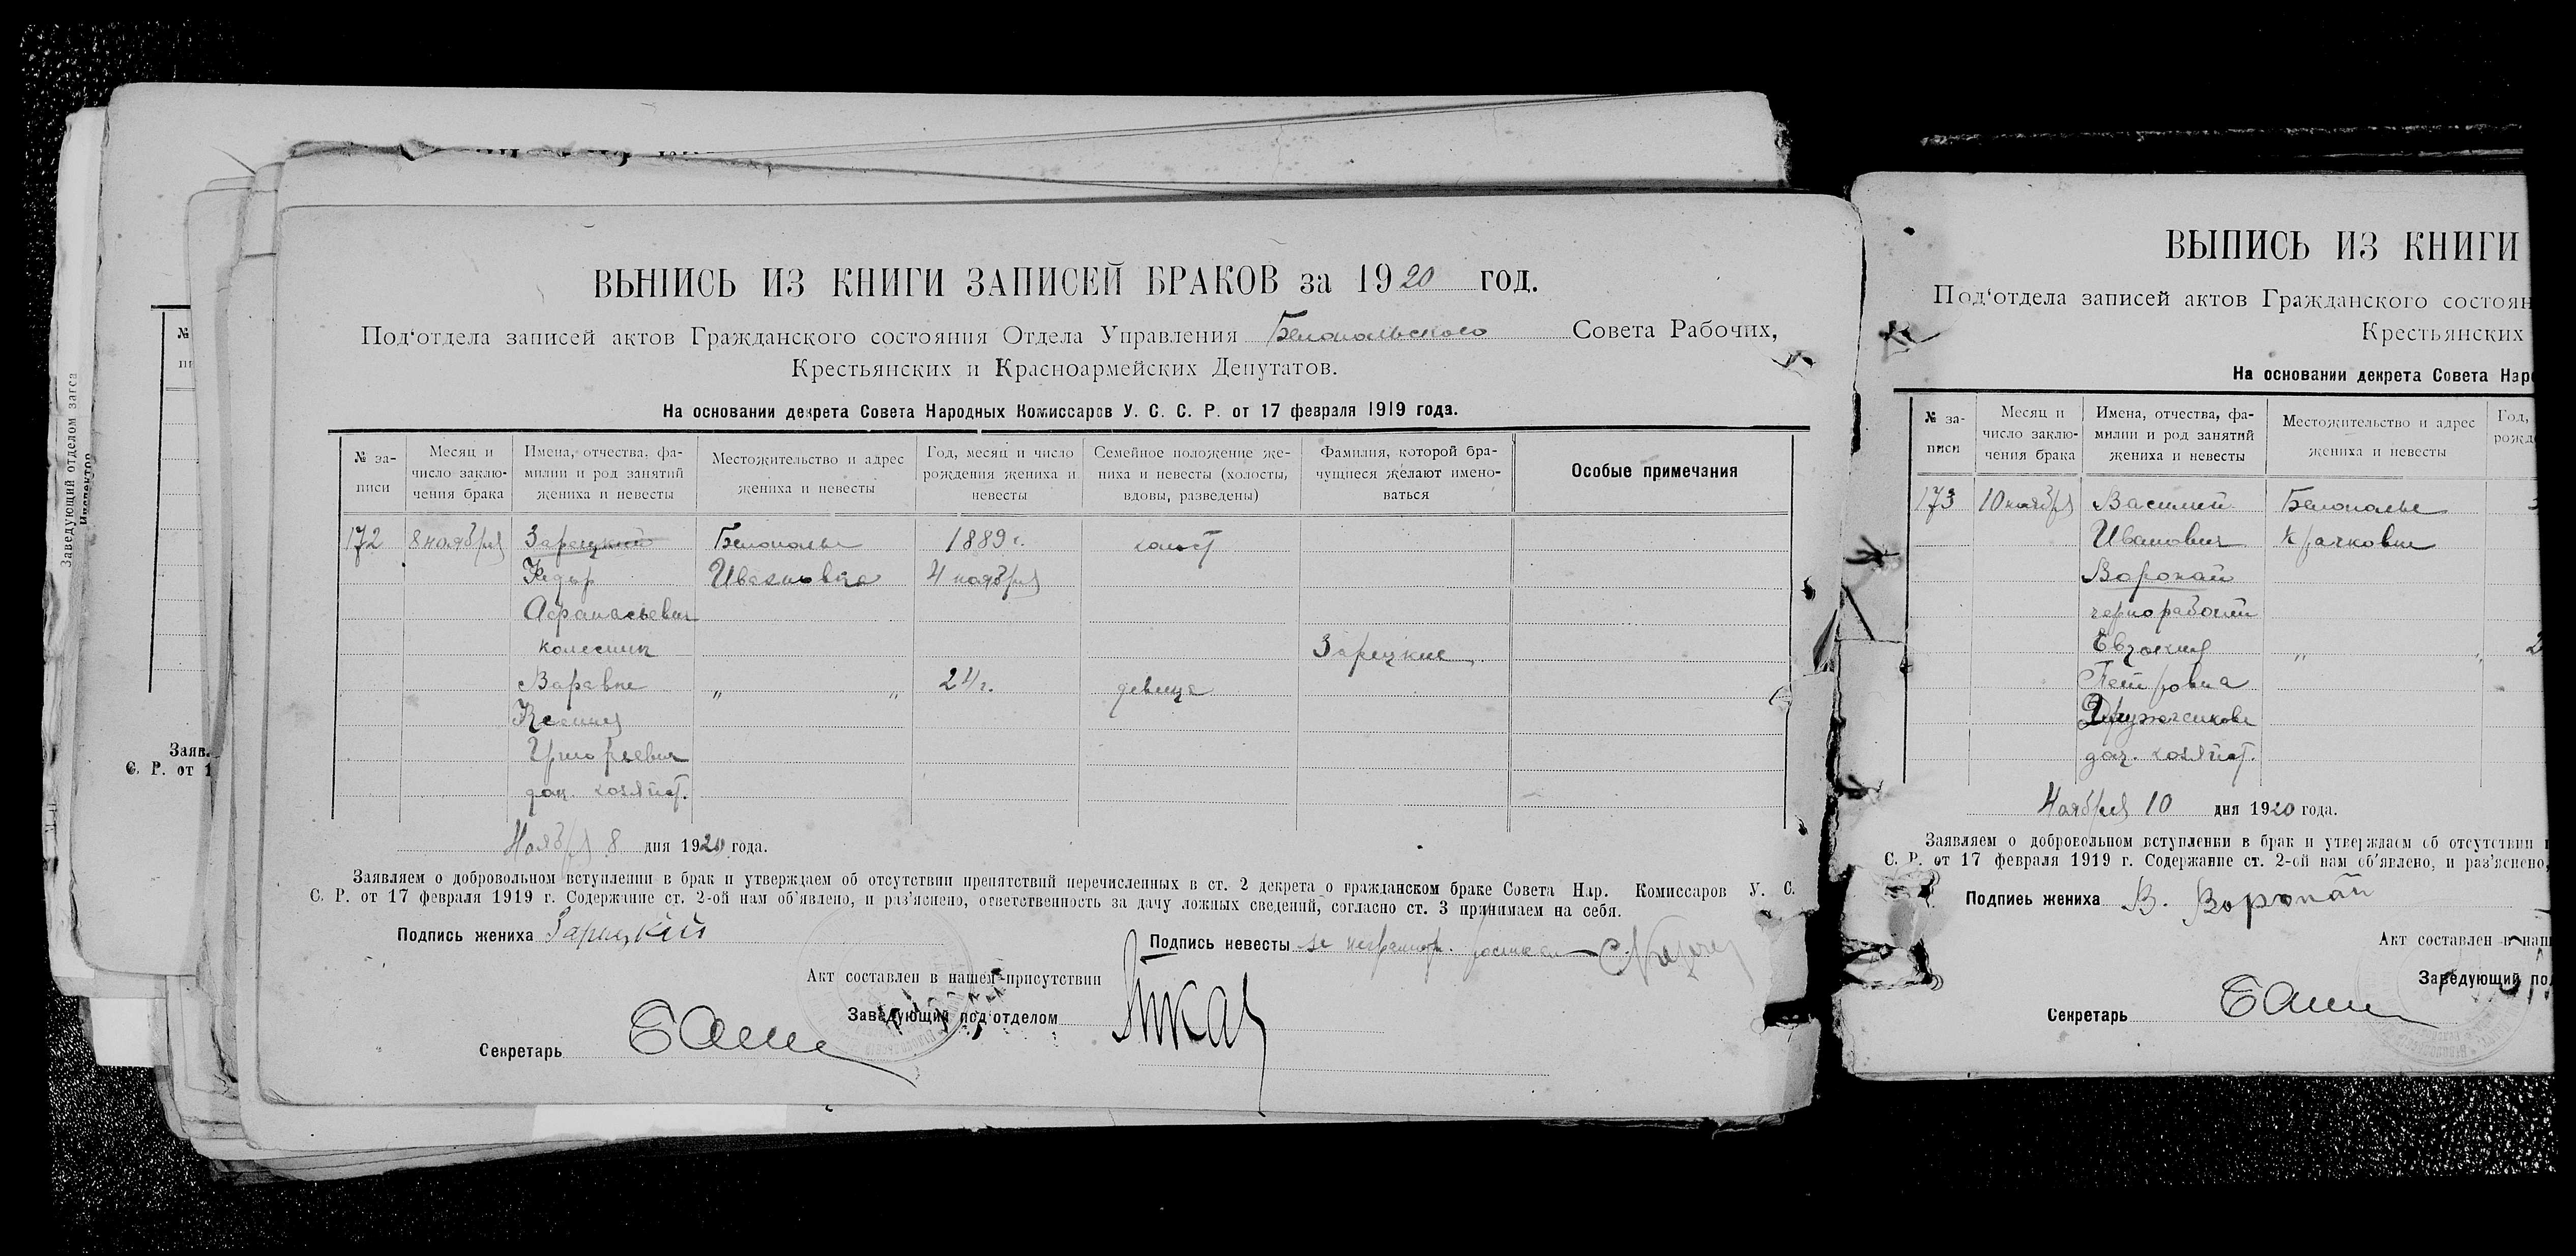 ВЫПИСЬ ИЗ КНИГИ ЗАПИСЕЙ БРАКОВ за 1920 год.
Под‘отдела записей актов Гражданского состояния Отдела Управления Белопольского Совета Рабочих,
Крестьянских и Красноармейских Депутатов.
На основании декрета Совета Народных Комиссаров У. С. С. Р. от 17 февраля 1919 года.
№ за-
писи
Месяц и
число заклю-
чения брака
Имена, отчества, фа-
милии и род занятий
жениха и невесты
Местожительство и адрес
жениха и невесты
Год, месяц и число
рождения жениха и
невесты
Семейное положение же-
ниха и невесты (холосты,
вдовы, разведены)
Фамилия, которой бра-
чущиеся желают имено-
ваться
Особые примечания
172 8 ноября Зарецкий Белополье 1889 г. холост
Федор 4 ноября
Афанасьевич
Зарецкие
„ „ 24 г. девица
Ксения
дом. хозяйст.
Ноября 8 дня 1920 года.
Заявляем о добровольном вступлении в брак и утверждаем об отсутствии препятствий перечисленных в ст. 2 декрета о гражданском браке Совета Нар. Комиссаров У. С.
С. Р. от 17 февраля 1919 г. Содержание ст. 2-ой нам об‘явлено, и раз‘яснено, ответственность за дачу ложных сведений, согласно ст. 3 принимаем на себя.
Подпись жениха Зарецкий
Подпись невесты
Акт составлен в нашем присутствии
Заведующий под‘отделом
Секретарь
ВЫПИСЬ ИЗ КНИГИ
Под‘отдела записей актов Гражданского состоян
Крестьянских
На основании декрета Совета Наро
№ за-
писи
Месяц и
число заклю-
чения брака
Имена, отчества, фа-
милии и род занятий
жениха и невесты
Местожительство и адрес
жениха и невесты
Год,
рожд
173 10 ноября Василий Белополье
Иванович Крачковка
Воропай
чернорабочий
Евдокия „ „ 2
Петровна
дом. хозяйст.
Ноября 10 дня 1920 года.
Заявляем о добровольном вступлении в брак и утверждаем об отсутствии п
С. Р. от 17 февраля 1919 г. Содержание ст. 2-ой нам об‘явлено, и раз‘яснено,
Подпись жениха В. Воропай
Акт составлен в наш
Заведующий под
Секретарь
Заведующий отделом загса
Инспектор
№
пи
Заяв
С. Р. от 1